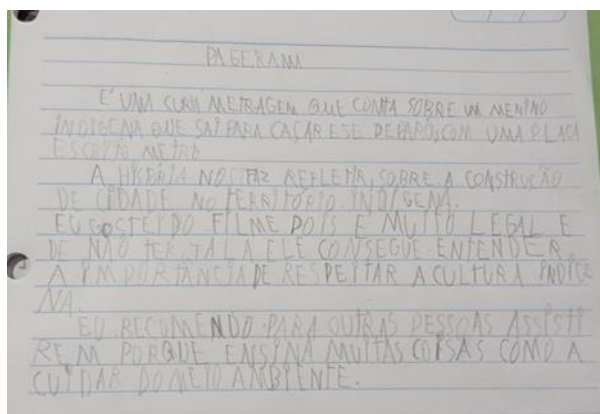 PAGERAMA
É UMA CURTA METRAGEM QUE CONTA SOBRE UM MENINO
INDÍGENA QUE SAI PARA CAÇAR E SE DEPAROU COM UMA PLACA
ESCRITO METRÔ
A HISTÓRIA NOS FAZ REFLETIR, SOBRE A CONSTRUÇÃO
DE CIDADE NO TERRITÓRIO INDÍGENA.
EU GOSTEI DO FILME POIS É MUITO LEGAL E
DE NÃO TER, TALA ELE CONSEGUE ENTENDER
A IMPORTÂNCIA DE RESPEITAR A CULTURA INDÍGE
NA.
EU RECOMENDO PARA OUTRAS PESSOAS ASSISTI
REM PORQUE ENSINA MUITAS COISAS COMO A
CUIDAR DO MEIO AMBIENTE.